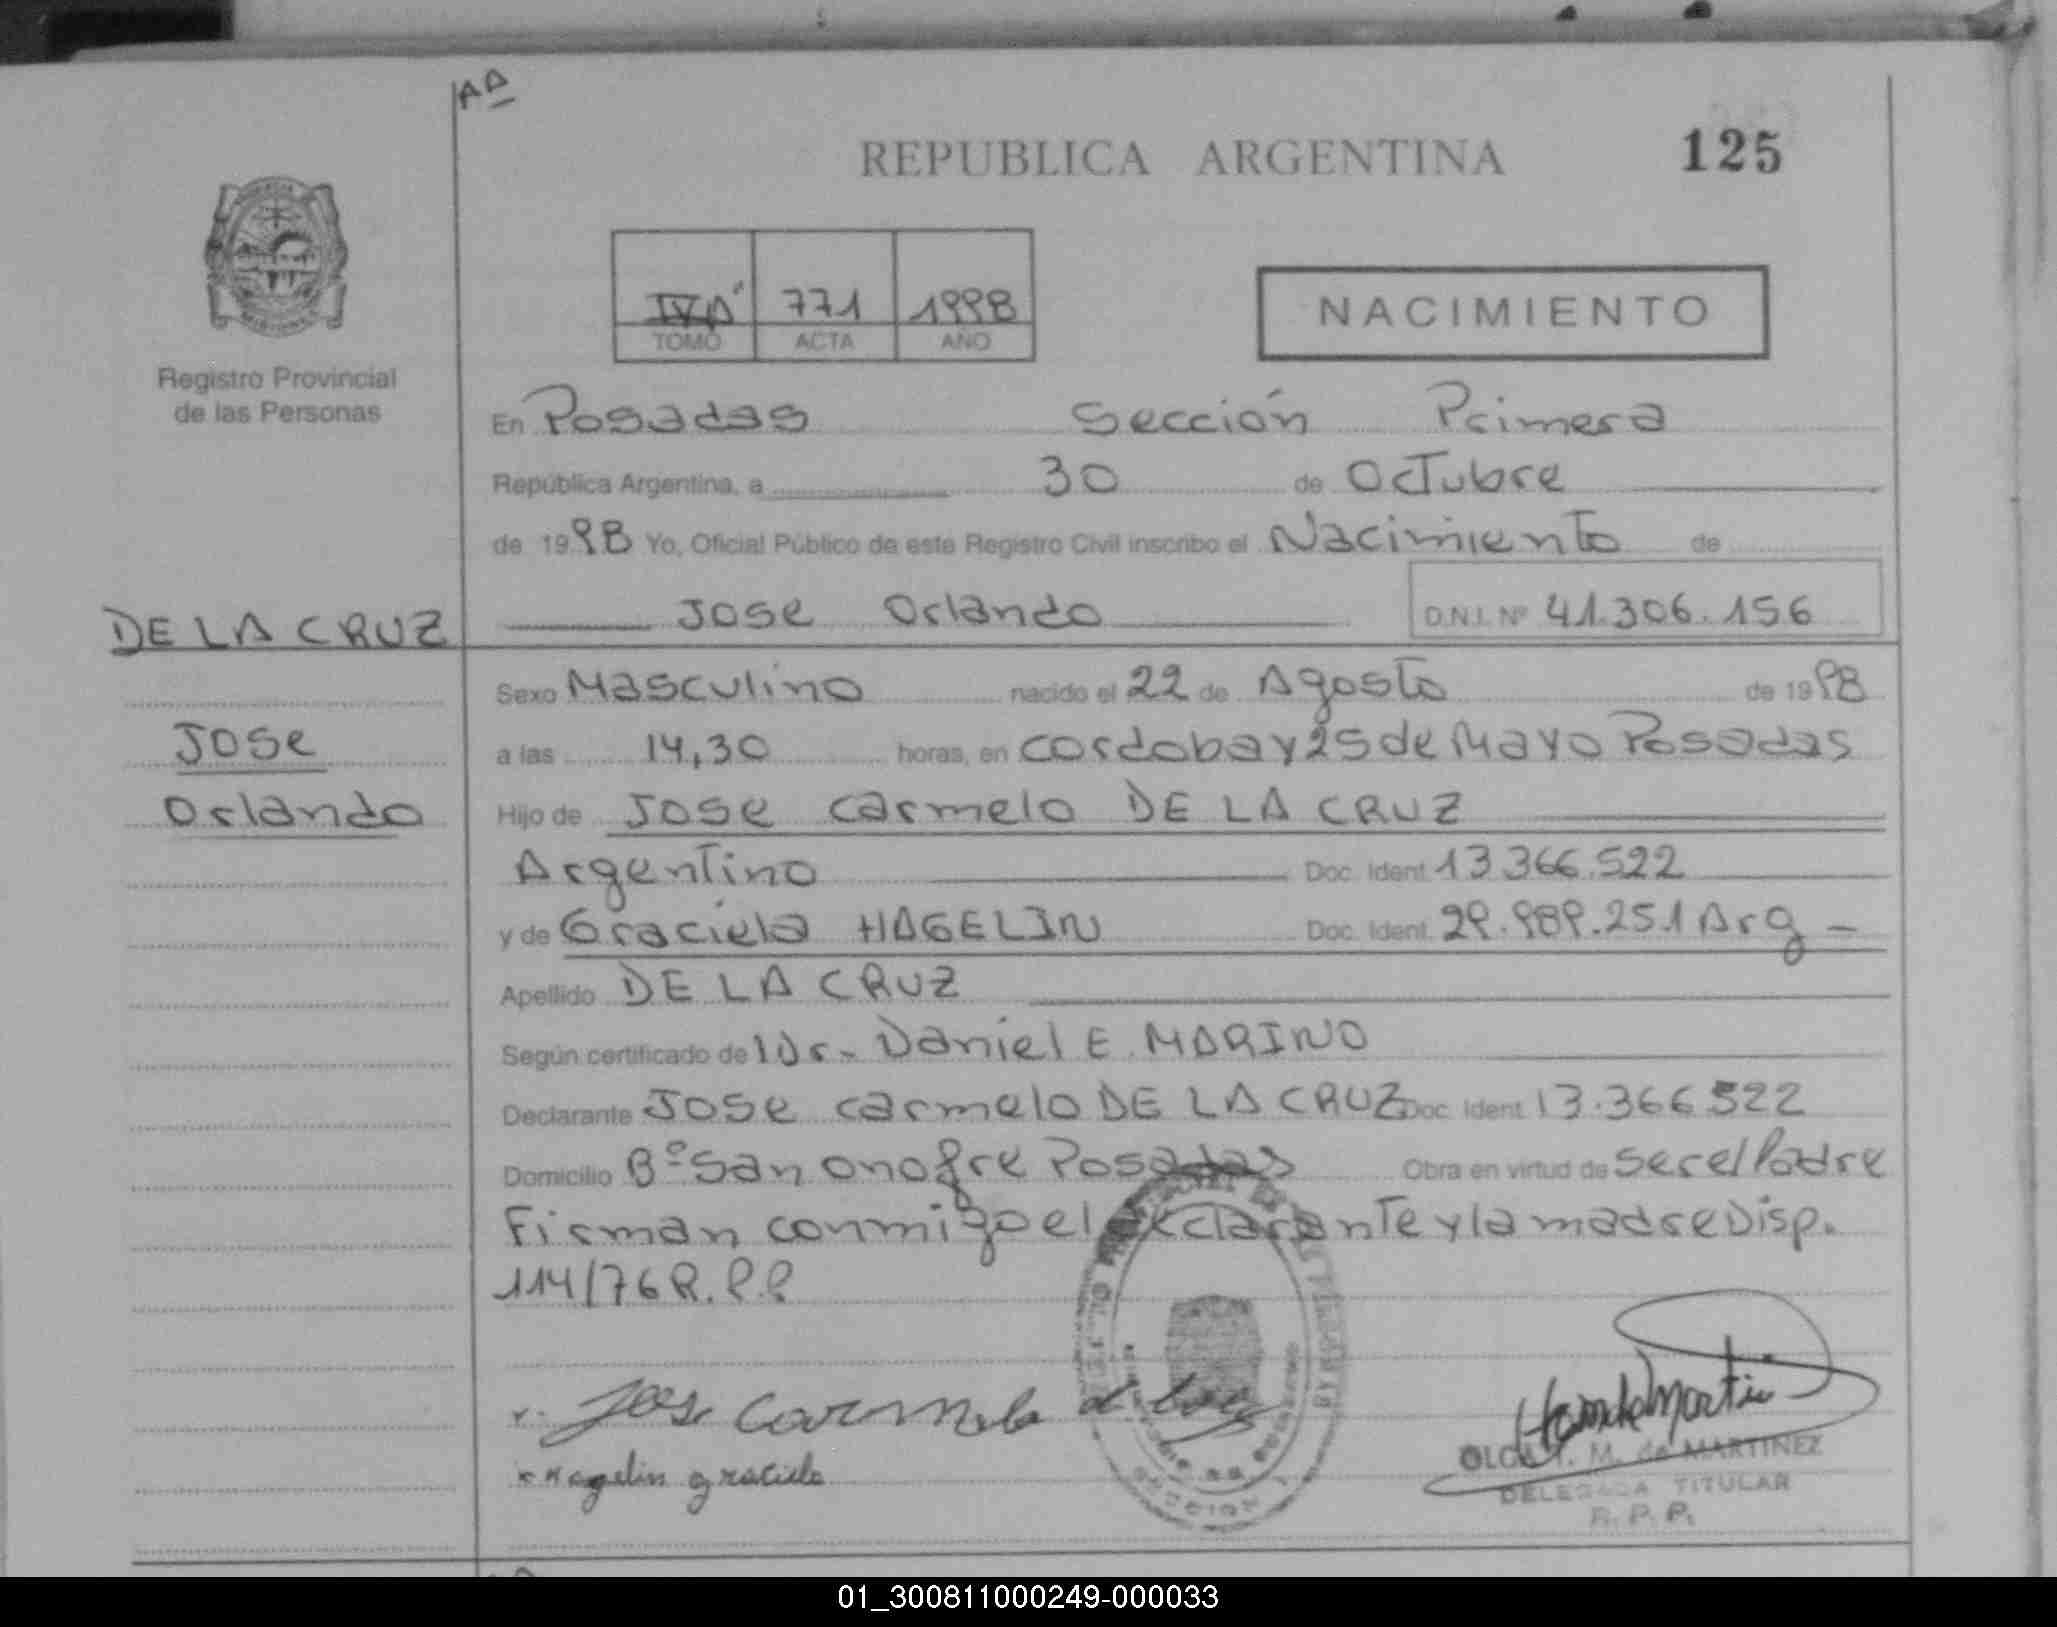 AD
REPUBLICA ARGENTINA
125
IVA 771 1998
TOMO ACTA AÑO
NACIMIENTO
Registro Provincial
de las Personas
En Posadas Sección Primera
República Argentina, a 30 de Octubre
de 1998 Yo, Oficial Público de este Registro Civil inscribo el Nacimiento de
DE LA CRUZ
Jose Orlando D.N.I. Nº 41.306.156
Sexo Masculino nacido el 22 de Agosto de 1998
Jose
a las 14,30 horas, en Cordoba y 25 de Mayo Posadas
Orlando
Hijo de Jose Carmelo DE LA CRUZ
Argentino Doc. Ident. 13.366.522
y de Graciela HAGELIN Doc. Ident. 29.989.251 Arg -
Apellido DE LA CRUZ
Según certificado de Dr. Daniel E. MARINO
Declarante Jose Carmelo DE LA CRUZ Doc. Ident. 13.366.522
Domicilio Bº San Onofre Posadas Obra en virtud de ser el Padre
Firman conmigo el declarante y la madre Disp.
114/76 R.P.P.
Jose Carmelo de la Cruz
Hagelin graciela
SECCION 1
M. de MARTINEZ
DELEGADA TITULAR
R. P. P.
01_300811000249-000033